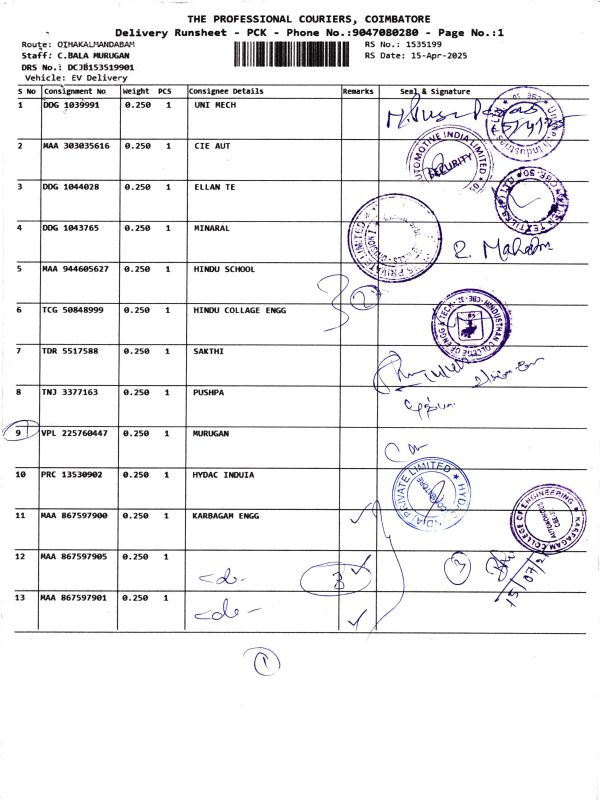 THE PROFESSIONAL COURIERS, COIMBATORE
Delivery Runsheet - PCK - Phone No.:9047080280 - Page No.:1
Route: OIMAKALMANDABAM RS No.: 1535199
Staff: C.BALA MURUGAN RS Date: 15-Apr-2025
DRS No.: DCJB153519901
Vehicle: EV Delivery
S No Consignment No Weight PCS Consignee Details Remarks Seal & Signature
1 DDG 1039991 0.250 1 UNI MECH
2 MAA 303035616 0.250 1 CIE AUT
AUTOMOTIVE INDIA LIMITED
SECURITY
3 DDG 1044028 0.250 1 ELLAN TE
4 DDG 1043765 0.250 1 MINARAL
PRIVATE LIMITED
5 MAA 944605627 0.250 1 HINDU SCHOOL
2
6 TCG 50848999 0.250 1 HINDU COLLAGE ENGG
HINDUSTHAN COLLEGE OF ENGG & TECH. CBE-32
7 TDR 5517588 0.250 1 SAKTHI
8 TNJ 3377163 0.250 1 PUSHPA
9 VPL 225760447 0.250 1 MURUGAN
10 PRC 13530902 0.250 1 HYDAC INDUIA
PRIVATE LIMITED
COIMBATORE
11 MAA 867597900 0.250 1 KARBAGAM ENGG
KARPAGAM COLLEGE OF ENGINEERING
12 MAA 867597905 0.250 1 -do- 3 3
13 MAA 867597901 0.250 1 -do-
1